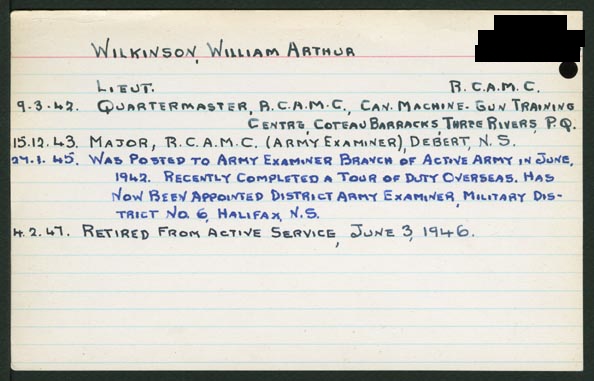 WILKINSON, WILLIAM ARTHUR
LIEUT. R.C.A.M.C.
9.3.42. QUARTERMASTER, R.C.A.M.C., CAN. MACHINE-GUN TRAINING
CENTRE, COTEAU BARRACKS, THREE RIVERS, P.Q.
15.12.43. MAJOR, R.C.A.M.C. (ARMY EXAMINER), DEBERT, N.S.
27.1.45. WAS POSTED TO ARMY EXAMINER BRANCH OF ACTIVE ARMY IN JUNE,
1942. RECENTLY COMPLETED A TOUR OF DUTY OVERSEAS. HAS
NOW BEEN APPOINTED DISTRICT ARMY EXAMINER, MILITARY DIS-
TRICT NO. 6, HALIFAX, N.S.
4.2.47. RETIRED FROM ACTIVE SERVICE, JUNE 3, 1946.